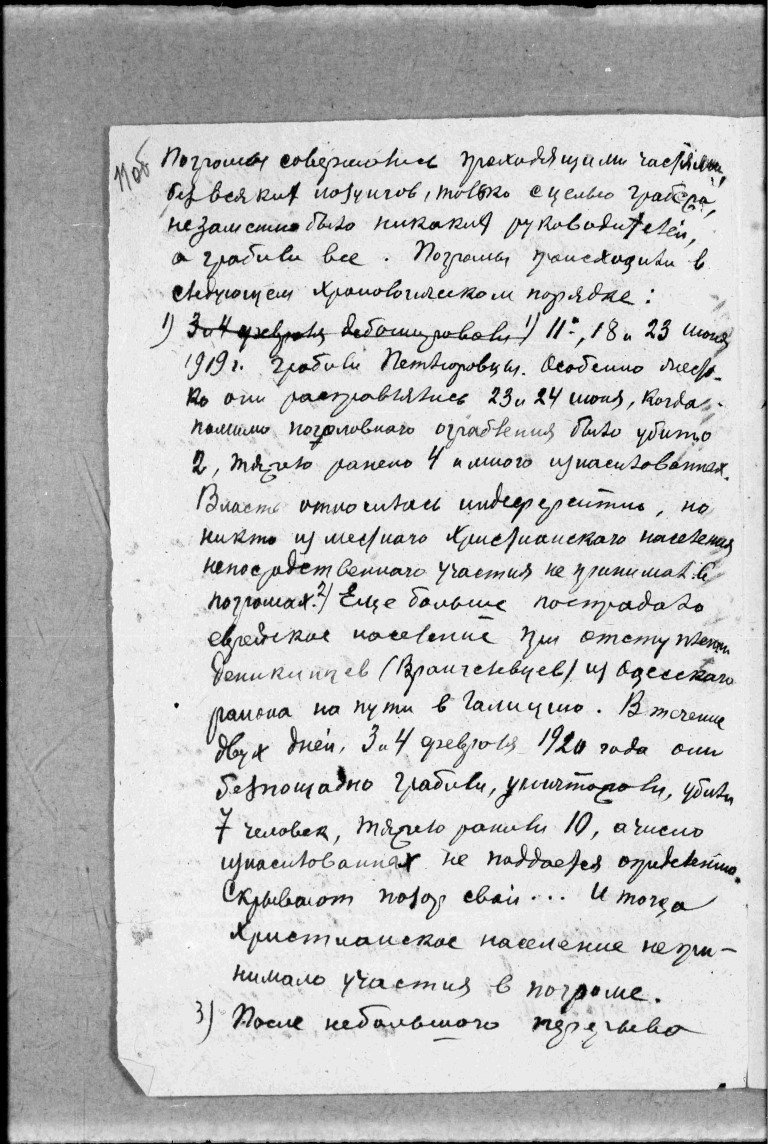 11об
Погромы совершались проходящими частями
без всяких лозунгов, только с целью грабежа,
незаметно было никаких руководителей,
а грабили все. Погромы происходили в
следующем хронологическом порядке:
1) 3 и 4 февраля дебошировали 1) 11-, 18 и 23 июня
1919 г. грабили Петлюровцы. Особенно жесто-
ко они расправлялись 23 и 24 июня, когда
помимо поголовного ограбления было убито
2, тяжело ранено 4 и много изнасилованных.
Власть относилась индеферентно, но
никто из местного христианского населения
непосредственного участия не принимал в
погромах. 2) Еще больше пострадало
еврейское население при отступлении
деникинцев (Врангелевцев) из Одесского
района на пути в Галицию. В течение
двух дней, 3 и 4 февраля 1920 года они
безпощадно грабили, уничтожали, убили
7 человек, тяжело ранили 10, а число
изнасилованных не поддается определению.
Скрывают позор свой... И тогда
христианское население непри-
нимало участия в погроме.
3) После небольшого перерыва